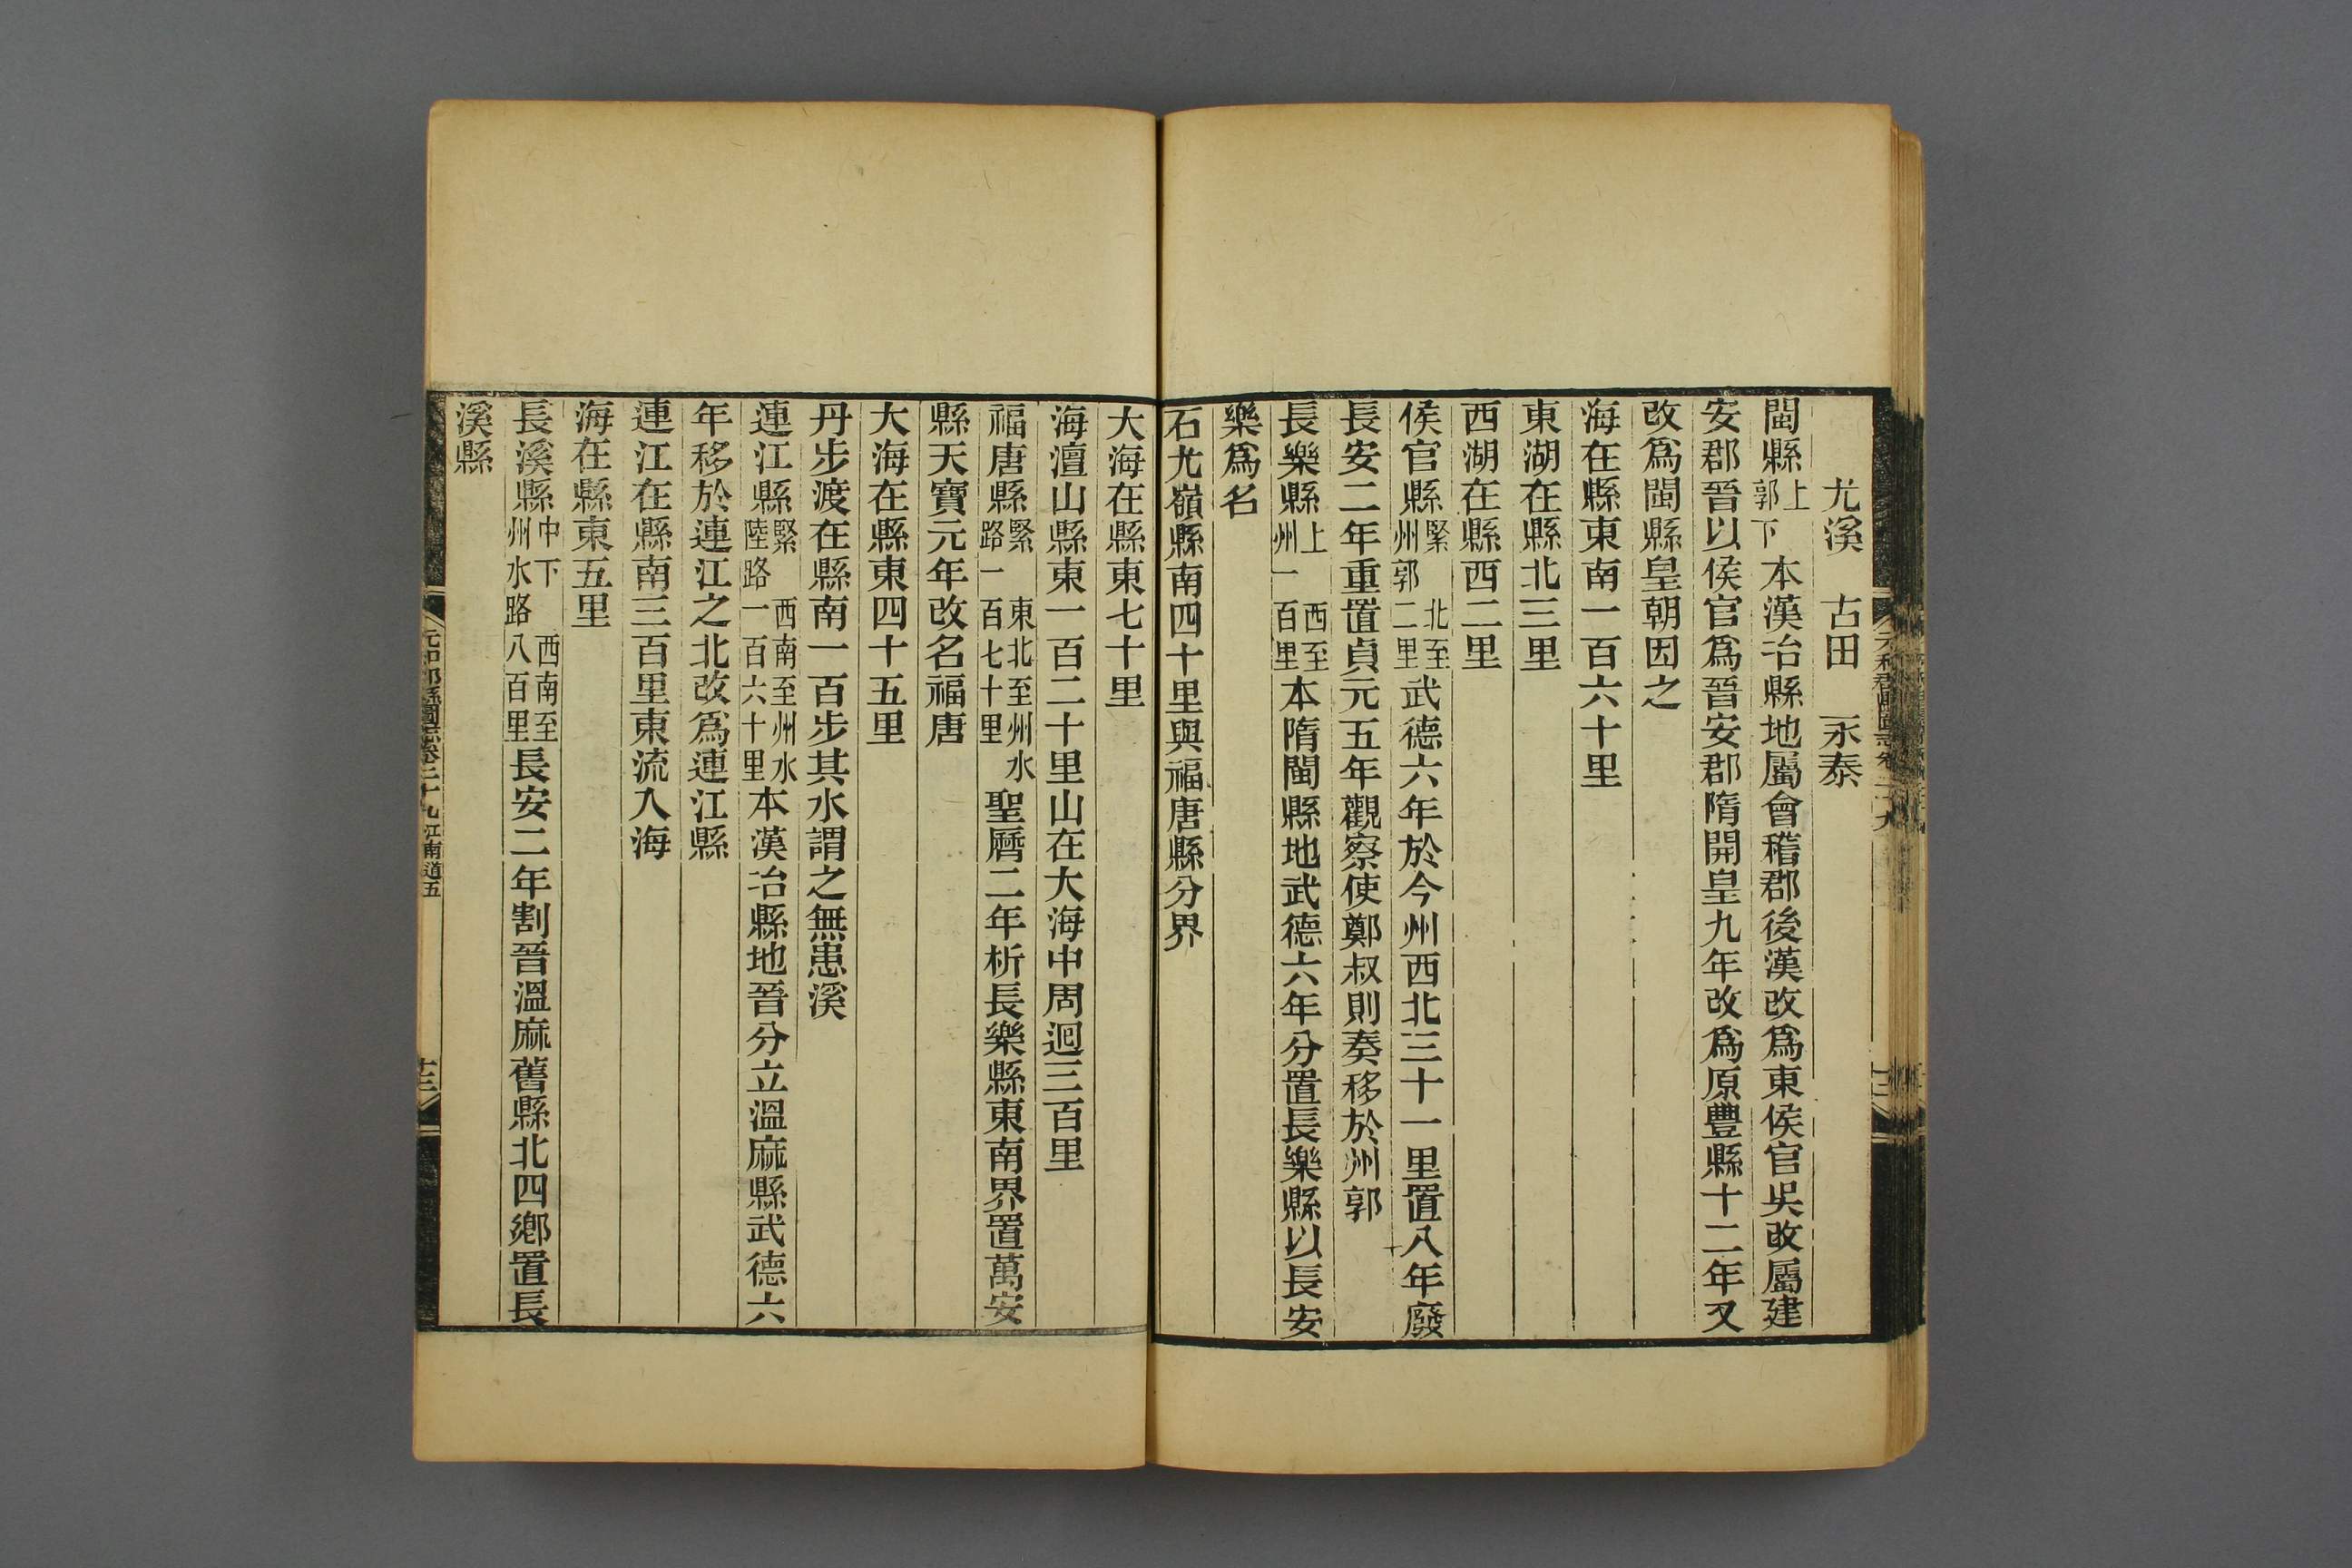 尤溪　古田　永泰
閩縣上郭下本漢冶縣地屬會稽郡後漢改爲東侯官吳改屬建
安郡晉以侯官爲晉安郡隋開皇九年改爲原豐縣十二年又
改爲閩縣皇朝因之
海在縣東南一百六十里
東湖在縣北三里
西湖在縣西二里
侯官縣緊　北至州郭二里武德六年於今州西北三十一里置八年廢
長安二年重置貞元五年觀察使鄭叔則奏移於州郭
長樂縣上　西至州一百里本隋閩縣地武德六年分置長樂縣以長安
樂爲名
石尤嶺縣南四十里與福唐縣分界
大海在縣東七十里
海澶山縣東一百二十里山在大海中周迴三百里
福唐縣緊　東北至州水路一百七十里聖曆二年析長樂縣東南界置萬安
縣天寶元年改名福唐
大海在縣東四十五里
丹步渡在縣南一百步其水謂之無患溪
連江縣緊　西南至州水陸路一百六十里本漢冶縣地晉分立溫麻縣武德六
年移於連江之北改爲連江縣
連江在縣南三百里東流入海
海在縣東五里
長溪縣中下　西南至州水路八百里長安二年割晉溫麻舊縣北四鄉置長
溪縣
元和郡縣圖志卷二十九　江南道五
十三